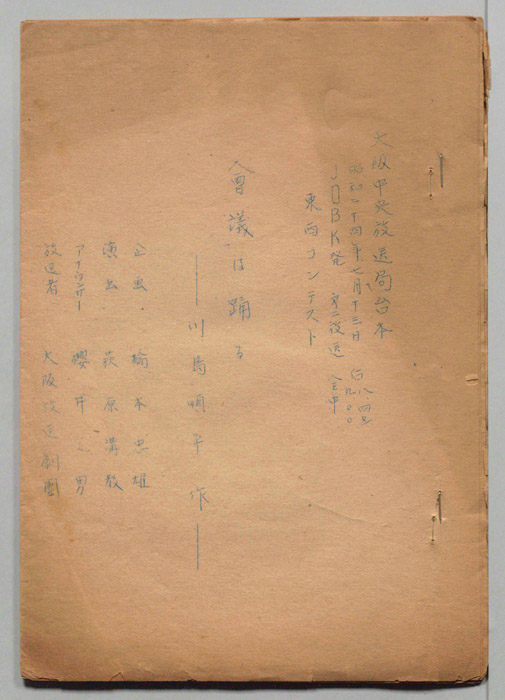 大阪中央放送局台本
昭和二十四年七月十三日 后八、四五
JOBK発 第二放送 全中 九、〇〇
東西コンテスト
會議は踊る
——川島順平 作——
企画・ 楠本忠雄
演出・ 萩原溝教
アナウンサー 櫻井一男
放送者 大阪放送劇團